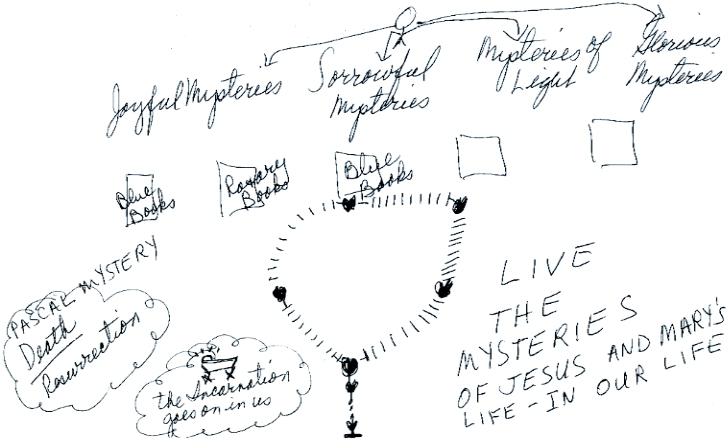 Joyful Mysteries
Sorrowful
Mysteries
Mysteries of
Light
Glorious
Mysteries
Blue
Books
Rosary
Books
Blue
Books
PASCAL MYSTERY
Death
Resurrection
the Incarnation
goes on in us
LIVE
THE
MYSTERIES
OF JESUS AND MARY'S
LIFE - IN OUR LIFE